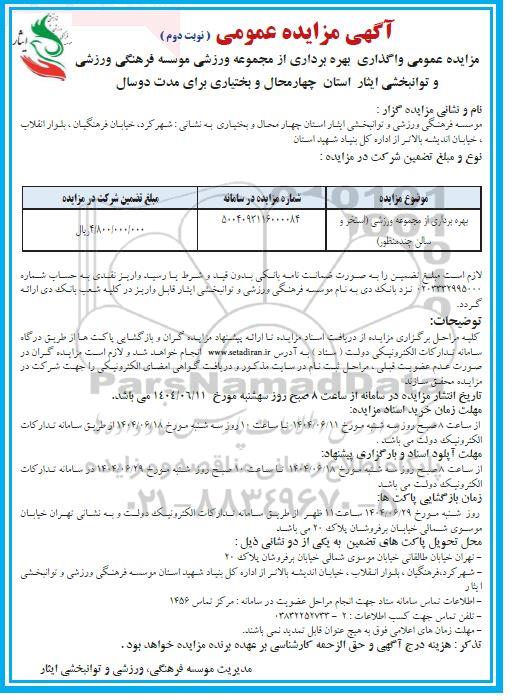 آگهی مزایده عمومی ( نوبت دوم )
ایثار
مزایده عمومی واگذاری بهره برداری از مجموعه ورزشی موسسه فرهنگی ورزشی
و توانبخشی ایثار استان چهارمحال و بختیاری برای مدت دوسال
نام و نشانی مزایده گزار :
موسسه فرهنگی ورزشی و توانبخشی ایثار استان چهار محال و بختیاری به نشانی : شهرکرد، خیابان فرهنگیان ، بلوار انقلاب
، خیابان اندیشه بالاتر از اداره کل بنیاد شهید استان
نوع و مبلغ تضمین شرکت در مزایده :
موضوع مزایده
شماره مزایده در سامانه
مبلغ تضمین شرکت در مزایده
بهره برداری از مجموعه ورزشی (استخر و
سالن چندمنظور)
۵۰۰۴۰۹۳۱۱۶۰۰۰۰۸۴
۴/۸۰۰/۰۰۰/۰۰۰ریال
لازم است مبلغ تضمین را به صورت ضمانت نامه بانکی بدون قید و شرط یا رسید واریز نقدی به حساب شماره
۰۲۰۳۳۳۲۹۹۵۰۰۰ نزد بانک دی به نام موسسه فرهنگی ورزشی و توانبخشی ایثار قابل واریز در کلیه شعب بانک دی ارائه
گردد.
توضیحات:
کلیه مراحل برگزاری مزایده از دریافت اسناد مزایده تا ارائه پیشنهاد مزایده گران و بازگشایی پاکت ها از طریق درگاه
سامانه تدارکات الکترونیکی دولت ( ستاد ) به آدرس www.setadiran.ir انجام خواهد شد و لازم است مزایده گران در
صورت عدم عضویت قبلی ، مراحل ثبت نام در سایت مذکور و دریافت گواهی امضای الکترونیکی را جهت شرکت در
مزایده محقق سازند
تاریخ انتشار مزایده در سامانه از ساعت ۸ صبح روز سهشنبه مورخ ۱۴۰۴/۰۶/۱۱ می باشد.
مهلت زمان خرید اسناد مزایده:
از ساعت ۸ صبح روز سه شنبه مورخ ۱۴۰۴/۰۶/۱۱ تا ساعت ۱۰ روز سه شنبه مورخ ۱۴۰۴/۰۶/۱۸ از طریق سامانه تدارکات
الکترونیک دولت می باشد .
مهلت آپلود اسناد و بارگذاری پیشنهاد:
از ساعت ۸ صبح روز سه شنبه مورخ ۱۴۰۴/۰۶/۱۸ تا ساعت ۱۰ صبح روز شنبه مورخ ۱۴۰۴/۰۶/۲۹ در سامانه تدارکات
الکترونیک دولت می باشد
زمان بازگشایی پاکت ها:
روز شنبه مورخ ۱۴۰۴/۰۶/۲۹ ساعت۱۱ ظهر از طریق سامانه تدارکات الکترونیک دولت و به نشانی تهران خیابان
موسوی شمالی خیابان برفروشان پلاک ۲۰ می باشد
محل تحویل پاکت های تضمین به یکی از دو نشانی ذیل :
- تهران خیابان طالقانی خیابان موسوی شمالی خیابان برفروشان پلاک ۲۰
- شهرکرد،فرهنگیان ، بلوار انقلاب ، خیابان اندیشه بالاتر از اداره کل بنیاد شهید استان موسسه فرهنگی ورزشی و توانبخشی
ایثار
- اطلاعات تماس سامانه ستاد جهت انجام مراحل عضویت در سامانه : مرکز تماس ۱۴۵۶
- تلفن تماس جهت کسب اطلاعات : ۲ - ۰۳۸۳۲۲۵۲۷۳۳
- مهلت زمان های اعلامی فوق به هیچ عنوان قابل تمدید نمی باشند.
تذکر : هزینه درج آگهی و حق الزحمه کارشناسی بر عهده برنده مزایده خواهد بود .
مدیریت موسسه فرهنگی، ورزشی و توانبخشی ایثار
ParsNamadData
۰۲۱-۸۸۳۴۹۶۷۰